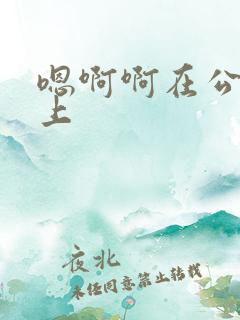 嗯啊啊在公
上
夜北
未经同意禁止转载